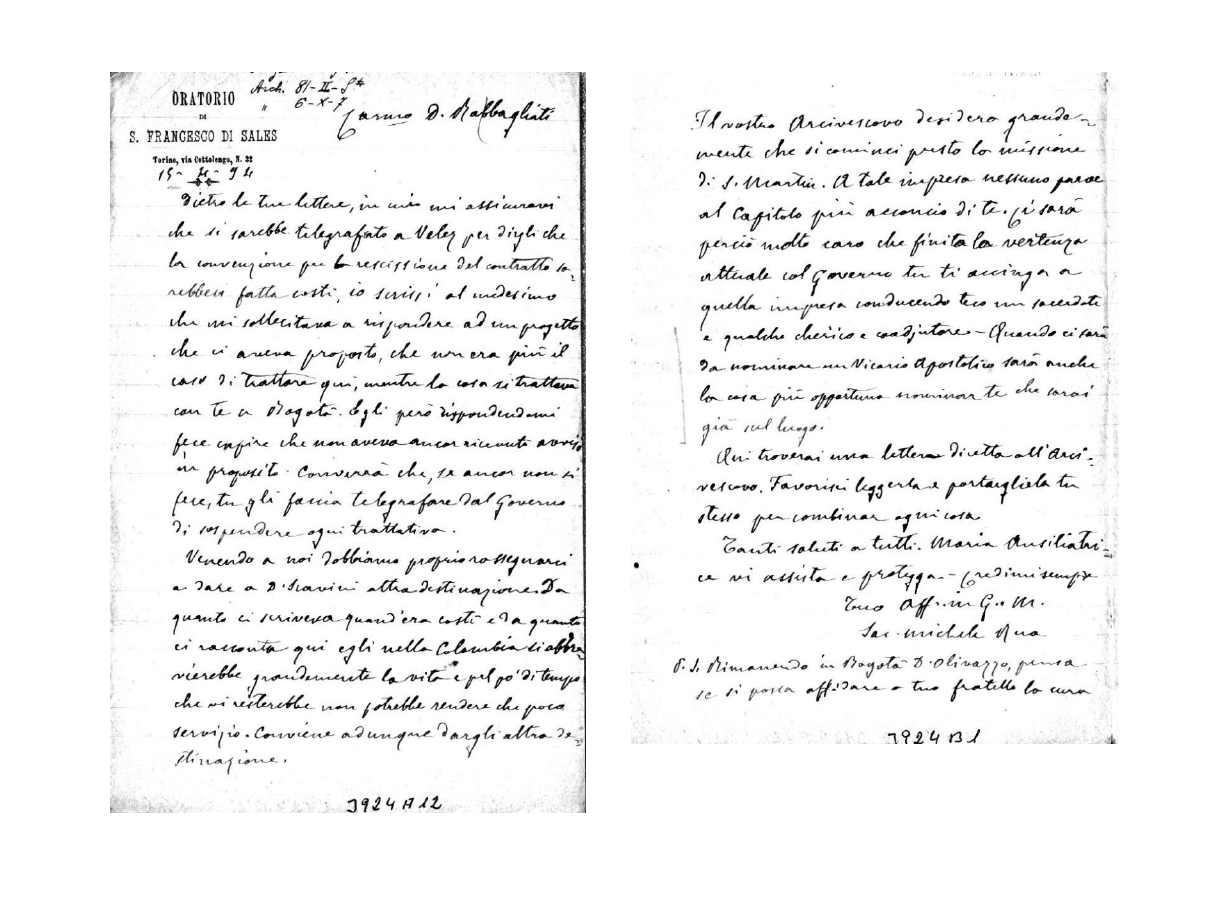 Arch. 81-II-S
" 6-X-7
ORATORIO
DI
S. FRANCESCO DI SALES
Torino, via Cottolengo, N. 32
15- 4- 94
Carmo D. Rabbagliati
Dietro le tue lettere, in cui mi assicuravi
che si sarebbe telegrafato a Velez per dirgli che
la convenzione per la rescissione del contratto sa-
rebbesi fatta costì, io scrissi al medesimo
che mi sollecitava a rispondere ad un progetto
che ci aveva proposto, che non era più il
caso di trattare qui, mentre la cosa si trattava
con te a Bogotà. Egli però rispondendomi
fece capire che non aveva ancor ricevuto avviso
in proposito. Converrà che, se ancor non si
fece, tu gli faccia telegrafare dal Governo
di sospendere ogni trattativa.
Venendo a noi dobbiamo proprio rassegnarci
a dare a D. Scavini altra destinazione. Da
quanto ci scriveva quand'era costì e da quanto
ci racconta qui egli nella Colombia si abbre-
vierebbe grandemente la vita e pel po' di tempo
che vi resterebbe non potrebbe rendere che poco
servizio. Conviene adunque dargli altra de-
stinazione.
J924 A 12
Il vostro Arcivescovo desidera grande-
mente che si cominci presto la missione
di S. Martin. A tale impresa nessuno parve
al Capitolo più acconcio di te. Ci sarà
perciò molto caro che finita la vertenza
attuale col Governo tu ti accinga a
quella impresa conducendo teco un sacerdote
e qualche chierico e coadjutore - Quando ci sarà
da nominare un Vicario Apostolico sarà anche
la cosa più opportuna nominar te che sarai
già sul luogo.
Qui troverai una lettera diretta all'Arci-
vescovo. Favorisci leggerla e portargliela tu
stesso per combinar ogni cosa
Tanti saluti a tutti. Maria Ausiliatri-
ce vi assista e protegga - Credimi sempre
Tuo aff. in G. e M.
Sac. Michele Rua
P. S. Rimanendo in Bogotà D. Olivazzo, pensa
se si possa affidare a tuo fratello la cura
J924 B 1